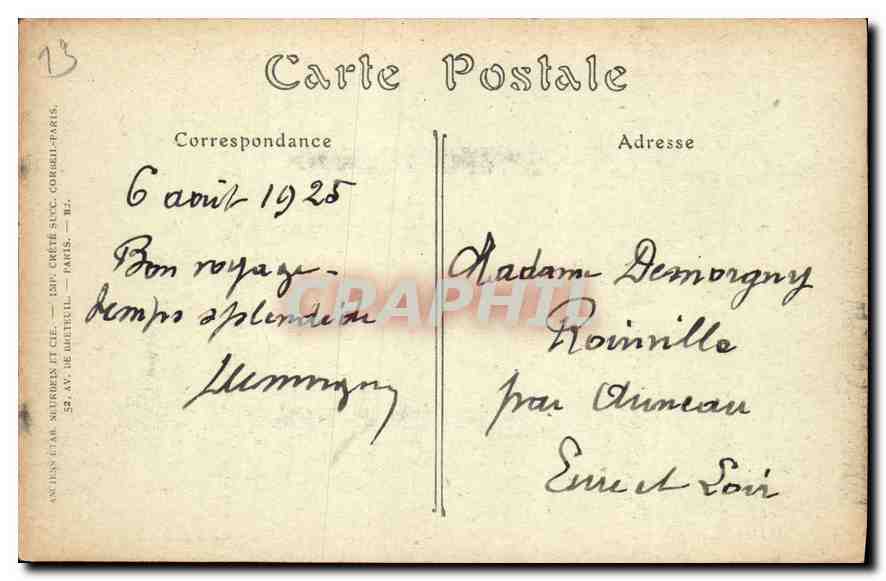 13
Carte Postale
Correspondance
6 août 1925
Bon voyage -
temps splendide
Demorgny
Adresse
Madame Demorgny
Roinville
par Auneau
Eure et Loir
ANCIENS ETAB. NEURDEIN ET CIE. — IMP. CRÉTÉ SUCC. CORBEIL-PARIS.
52, AV. DE BRETEUIL. — PARIS. —
CPAPHIL